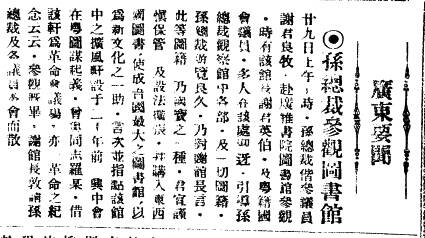 廣東要聞
◉孫總裁參觀圖書館
廿九日上午 時・孫總裁偕參議員
謝君良牧・赴廣雅書院圖書館參觀
・時有該館長謝君英伯・及粵籍國
會議員・多人在該處迎迓・引導孫
總裁參觀館中各部・及一切圖籍・
孫總裁遊覽良久・乃對謝館長言・
此等圖籍・乃國寶之一種・君宜謹
慎保管・及設法擴張・ 購入東西
圖書・使成吾國最大之圖書館・以
為新文化之一助・言次並指點該館
中之擴風軒設于二十年前・興中會
在粵圖謀起義・曾與同志羅某・借
該軒爲革命會議場・亦 革命之紀
念云云・參觀旣畢・謝館長敦請孫
總裁及各議員 會而散